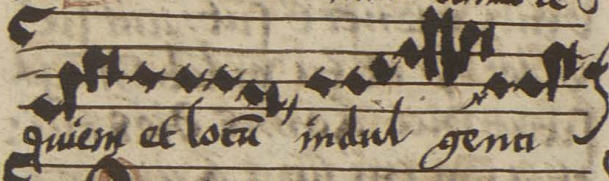 quiem et locū indul genti